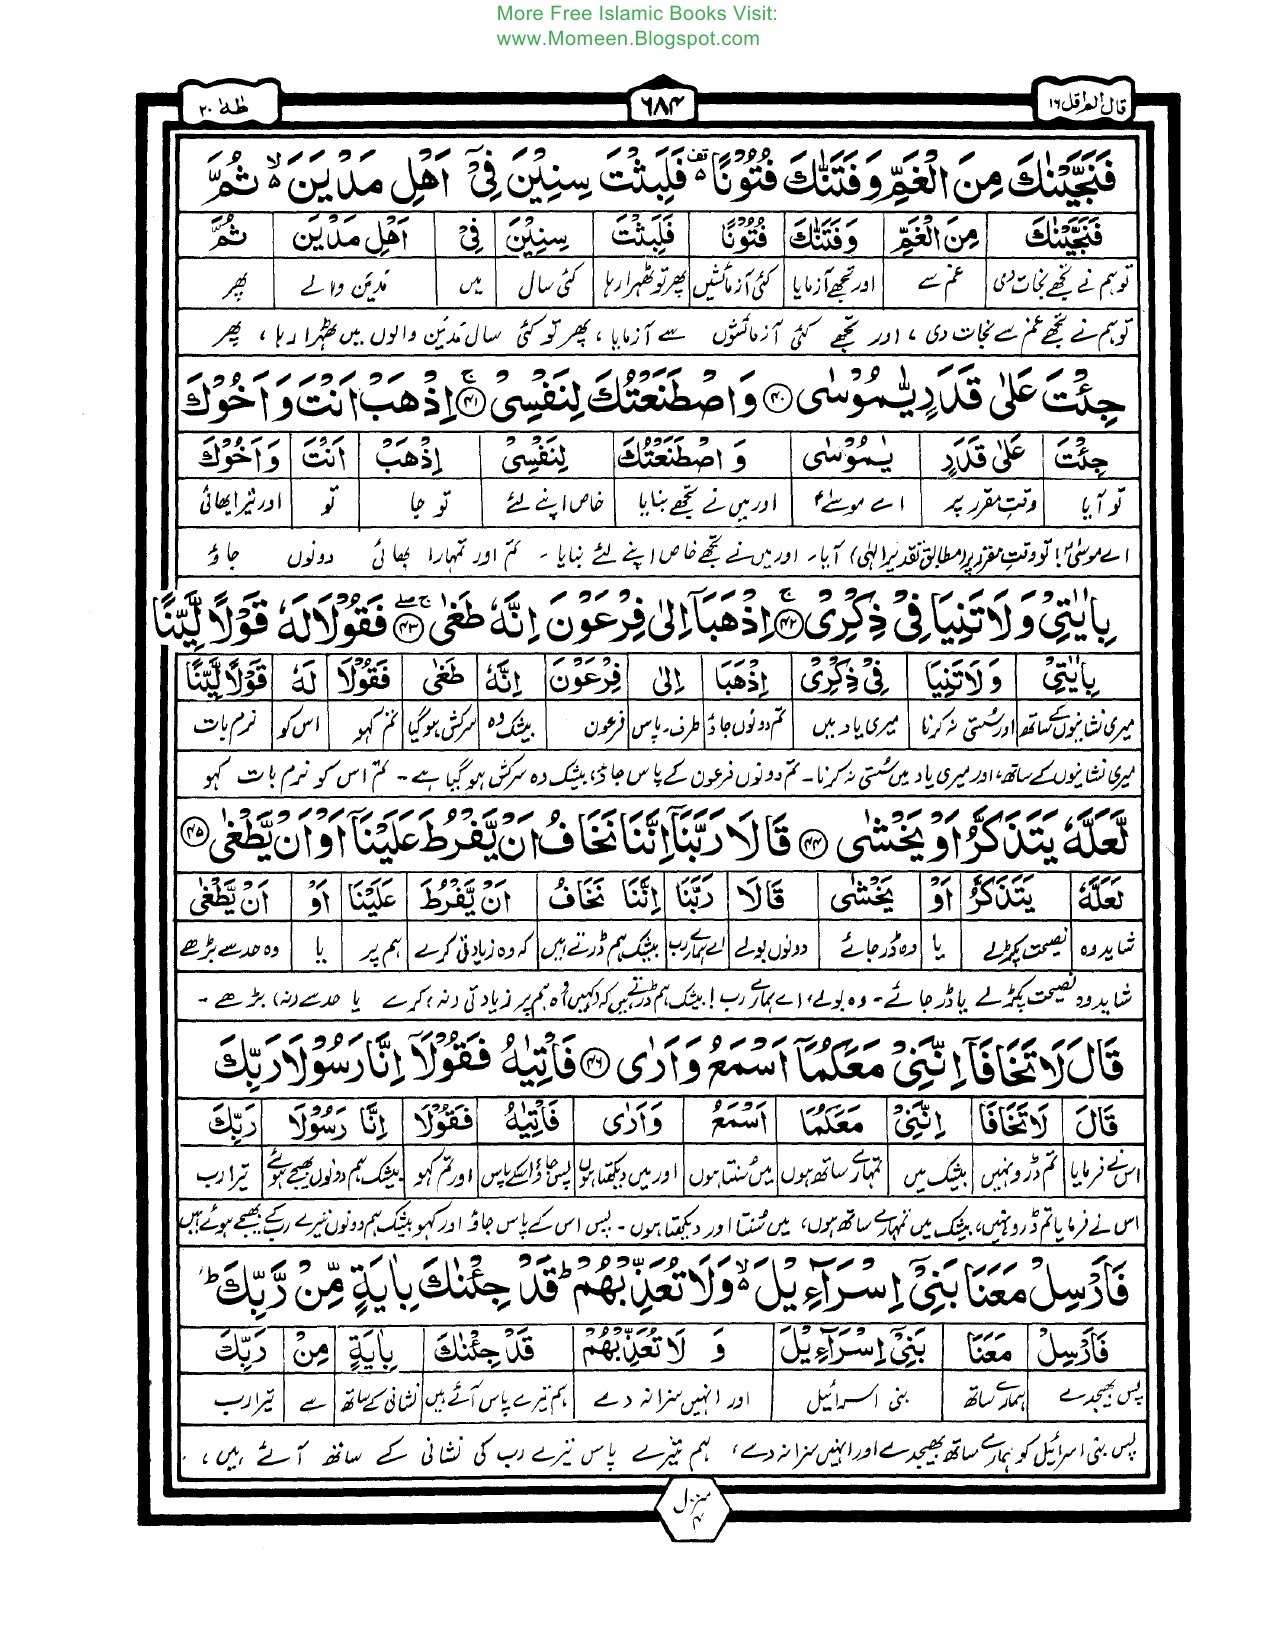 More Free Islamic Books Visit:
www.Momeen.Blogspot.com
قال الم اقل ۱۶
۶۸۴
طٰهٰ ۲۰
فَنَجَّيْنٰكَ مِنَ الْغَمِّ وَفَتَنّٰكَ فُتُوْنًا ۥ فَلَبِثْتَ سِنِيْنَ فِيْٓ اَهْلِ مَدْيَنَ ۙ ثُمَّ
فَنَجَّيْنٰكَ مِنَ الْغَمِّ وَفَتَنّٰكَ فُتُوْنًا فَلَبِثْتَ سِنِيْنَ فِيْٓ اَهْلِ مَدْيَنَ ثُمَّ
تو ہم نے تجھے نجات دی غم سے اور تجھے آزمایا کئی آزمائشیں پھر تو ٹھہرا رہا کئی سال میں مدین والے پھر
تو ہم نے تجھے غم سے نجات دی، اور تجھے کئی آزمائشوں سے آزمایا، پھر تو کئی سال مدین والوں میں ٹھہرا رہا، پھر
جِئْتَ عَلٰى قَدَرٍ يّٰمُوْسٰى ﴿۴۰﴾ وَاصْطَنَعْتُكَ لِنَفْسِيْ ﴿۴۱﴾ۚ اِذْهَبْ اَنْتَ وَاَخُوْكَ
جِئْتَ عَلٰى قَدَرٍ يٰمُوْسٰى وَاصْطَنَعْتُكَ لِنَفْسِيْ اِذْهَبْ اَنْتَ وَاَخُوْكَ
تو آیا وقتِ مقرر پر اے موسےٰ اور میں نے تجھے بنایا خاص اپنے لئے تو جا تو اور تیرا بھائی
اے موسیٰ! تو وقتِ مقرر پر (مطابق تقدیر الٰہی) آیا۔ اور میں نے تجھے خاص اپنے لئے بنایا۔ تم اور تمہارا بھائی دونوں جاؤ
بِاٰيٰتِيْ وَلَا تَنِيَا فِيْ ذِكْرِيْ ﴿۴۲﴾ۚ اِذْهَبَآ اِلٰى فِرْعَوْنَ اِنَّهٗ طَغٰى ﴿۴۳﴾ۚۖ فَقُوْلَا لَهٗ قَوْلًا لَّيِّنًا
بِاٰيٰتِيْ وَلَا تَنِيَا فِيْ ذِكْرِيْ اِذْهَبَا اِلٰى فِرْعَوْنَ اِنَّهٗ طَغٰى فَقُوْلَا لَهٗ قَوْلًا لَّيِّنًا
میری نشانیوں کے ساتھ اور سُستی نہ کرنا میری یاد میں تم دونوں جاؤ طرف۔پاس فرعون بیشک وہ سرکش ہو گیا تم کہو اس کو نرم بات
میری نشانیوں کے ساتھ، اور میری یاد میں سُستی نہ کرنا۔ تم دونوں فرعون کے پاس جاؤ، بیشک وہ سرکش ہو گیا ہے۔ تم اس کو نرم بات کہو
لَّعَلَّهٗ يَتَذَكَّرُ اَوْ يَخْشٰى ﴿۴۴﴾ قَالَا رَبَّنَآ اِنَّنَا نَخَافُ اَنْ يَّفْرُطَ عَلَيْنَآ اَوْ اَنْ يَّطْغٰى ﴿۴۵﴾
لَعَلَّهٗ يَتَذَكَّرُ اَوْ يَخْشٰى قَالَا رَبَّنَا اِنَّنَا نَخَافُ اَنْ يَّفْرُطَ عَلَيْنَا اَوْ اَنْ يَّطْغٰى
شاید وہ نصیحت پکڑ لے یا وہ ڈر جائے دونوں بولے اے ہمارے رب بیشک ہم ڈرتے ہیں کہ وہ زیادتی کرے ہم پر یا وہ حد سے بڑھے
شاید وہ نصیحت پکڑ لے یا ڈر جائے۔ وہ بولے، اے ہمارے رب! بیشک ہم ڈرتے ہیں کہ (کہیں) وہ ہم پر زیادتی (نہ) کرے یا حد سے (نہ) بڑھے۔
قَالَ لَا تَخَافَآ اِنَّنِيْ مَعَكُمَآ اَسْمَعُ وَاَرٰى ﴿۴۶﴾ فَاْتِيٰهُ فَقُوْلَآ اِنَّا رَسُوْلَا رَبِّكَ
قَالَ لَا تَخَافَا اِنَّنِيْ مَعَكُمَا اَسْمَعُ وَاَرٰى فَاْتِيٰهُ فَقُوْلَا اِنَّا رَسُوْلَا رَبِّكَ
اس نے فرمایا تم ڈرو نہیں بیشک میں تمہارے ساتھ ہوں میں سُنتا ہوں اور میں دیکھتا ہوں پس جاؤ اسکے پاس اور تم کہو بیشک ہم دونوں بھیجے ہوئے تیرا رب
اس نے فرمایا تم ڈرو نہیں، بیشک میں تمہارے ساتھ ہوں، میں سُنتا اور دیکھتا ہوں۔ پس اس کے پاس جاؤ اور کہو بیشک ہم دونوں تیرے رب کے بھیجے ہوئے ہیں
فَاَرْسِلْ مَعَنَا بَنِيْٓ اِسْرَآءِيْلَ ۙ وَلَا تُعَذِّبْهُمْ ؕ قَدْ جِئْنٰكَ بِاٰيَةٍ مِّنْ رَّبِّكَ ؕ
فَاَرْسِلْ مَعَنَا بَنِيْٓ اِسْرَآءِيْلَ وَ لَا تُعَذِّبْهُمْ قَدْ جِئْنٰكَ بِاٰيَةٍ مِنْ رَبِّكَ
پس بھیجدے ہمارے ساتھ بنی اسرائیل اور انہیں سزا نہ دے ہم تیرے پاس آئے ہیں نشانی کے ساتھ سے تیرا رب
پس بنی اسرائیل کو ہمارے ساتھ بھیجدے اور انہیں سزا نہ دے، ہم تیرے پاس تیرے رب کی نشانی کے ساتھ آئے ہیں،
منزل ۴